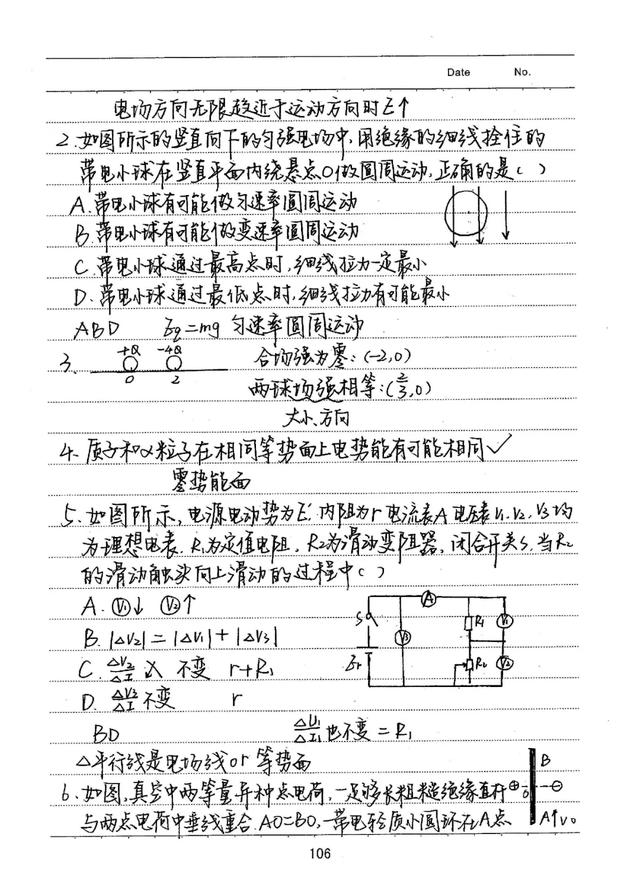 Date No.
电场方向无限趋近于运动方向时E↑
2.如图所示的竖直向下的匀强电场中,用绝缘的细线拴住的
带电小球在竖直平面内绕悬点O做圆周运动,正确的是( )
A.带电小球有可能做匀速率圆周运动
B.带电小球有可能做变速率圆周运动
C.带电小球通过最高点时,细线拉力一定最小
D.带电小球通过最低点时,细线拉力有可能最小
ABD Eq=mg 匀速率圆周运动
3. +Q -4Q 合场强为零:(-2,0)
0 2 两球场强相等:(2/3,0)
大小、方向
4.质子和α粒子在相同等势面上电势能有可能相同✓
零势能面
5.如图所示,电源电动势为E,内阻为r电流表A电压表V₁、V₂、V₃均
为理想电表,R₁为定值电阻,R₂为滑动变阻器,闭合开关S,当R₂
的滑动触头向上滑动的过程中( )
A. V₁↓ V₂↑
B. |ΔV₂|=|ΔV₁|+|ΔV₃|
C. ΔV₂/ΔI 不变 r+R₁
D. ΔV₃/ΔI 不变 r
S E r A V₃ R₁ V₁ R₂ V₂
BD ΔU₁/ΔI₁也不变=R₁
△平行线是电场线or等势面
6.如图,真空中两等量异种点电荷,一足够长粗糙绝缘直杆
与两点电荷中垂线重合.AO=BO,一带电轻质小圆环在A点
B
⊕ O ⊖
A↑v₀
106